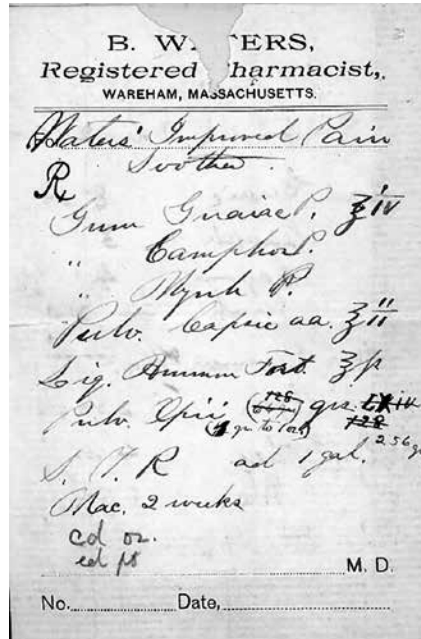 B. W TERS,
Registered harmacist,
WAREHAM, MASSACHUSETTS.
Waters' Improved Pain
Soother.
℞
Gum Guaiac P. ℥ iv
" Camphor P.
" Myrrh P.
Pulv. Capsic aa. ℥ ii
Liq. Ammon Fort. ℥ j
Pulv. Opii (128) grs.
(4 gr. to 1 oz) 128
256 gr
S. V. R ad 1 gal.
Mac. 2 weeks
cd oz.
cd pt
M. D.
No. Date,